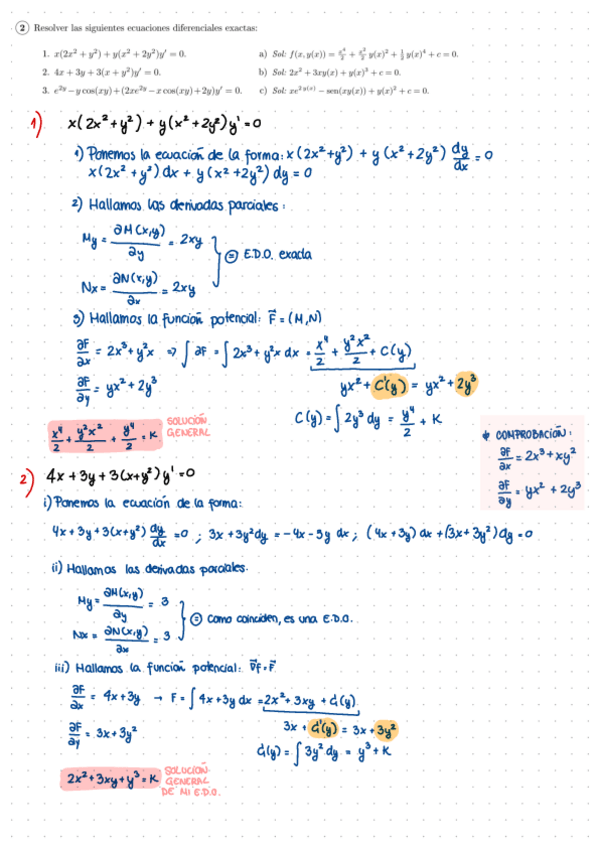 2 Resolver las siguientes ecuaciones diferenciales exactas:
1. x(2x² + y²) + y(x² + 2y²)y' = 0.
a) Sol: f(x, y(x)) = x⁴/2 + x²/2 y(x)² + 1/2 y(x)⁴ + c = 0.
2. 4x + 3y + 3(x + y²)y' = 0.
b) Sol: 2x² + 3xy(x) + y(x)³ + c = 0.
3. e^2y − y cos(xy) + (2xe^2y − x cos(xy) + 2y)y' = 0.
c) Sol: xe^2y(x) − sen(xy(x)) + y(x)² + c = 0.
1) x(2x² + y²) + y(x² + 2y²)y' = 0
1) Ponemos la ecuación de la forma: x(2x² + y²) + y(x² + 2y²) dy/dx = 0
x(2x² + y²) dx + y(x² + 2y²) dy = 0
2) Hallamos las derivadas parciales:
My = ∂M(x,y)/∂y = 2xy
= E.D.O. exacta
Nx = ∂N(x,y)/∂x = 2xy
3) Hallamos la función potencial: F⃗ = (M,N)
∂F/∂x = 2x³ + y²x ⇒ ∫∂F = ∫2x³ + y²x dx = x⁴/2 + y²x²/2 + C(y)
∂F/∂y = yx² + 2y³
yx² + C'(y) = yx² + 2y³
C(y) = ∫2y³ dy = y⁴/2 + K
x⁴/2 + y²x²/2 + y⁴/2 = K
SOLUCIÓN
GENERAL
* COMPROBACIÓN:
∂F/∂x = 2x³ + xy²
∂F/∂y = yx² + 2y³
2) 4x + 3y + 3(x + y²)y' = 0
i) Ponemos la ecuación de la forma:
4x + 3y + 3(x + y²) dy/dx = 0 ; 3x + 3y² dy = −4x − 3y dx ; (4x + 3y) dx + (3x + 3y²) dy = 0
ii) Hallamos las derivadas parciales.
My = ∂M(x,y)/∂y = 3
= Como coinciden, es una E.D.O.
Nx = ∂N(x,y)/∂x = 3
iii) Hallamos la función potencial: ∇⃗f = F⃗
∂F/∂x = 4x + 3y → F = ∫4x + 3y dx = 2x² + 3xy + G(y)
∂F/∂y = 3x + 3y²
3x + G'(y) = 3x + 3y²
G(y) = ∫3y² dy = y³ + K
2x² + 3xy + y³ = K
SOLUCIÓN
GENERAL
DE MI E.D.O.